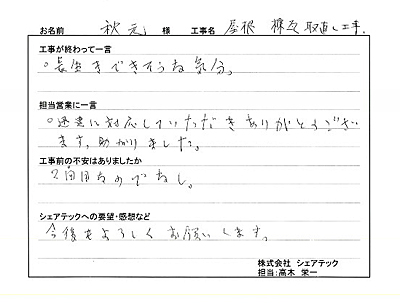 お名前 秋元 様 工事名 屋根 棟瓦取直し工事.
工事が終わって一言
。長生きできそうな気分。
担当営業に一言
。迅速に対応していただきありがとうござい
ます。助かりました。
工事前の不安はありましたか
2回目なのでなし。
シェアテックへの要望・感想など
今後もよろしくお願いします。
株式会社 シェアテック
担当:高木 栄一